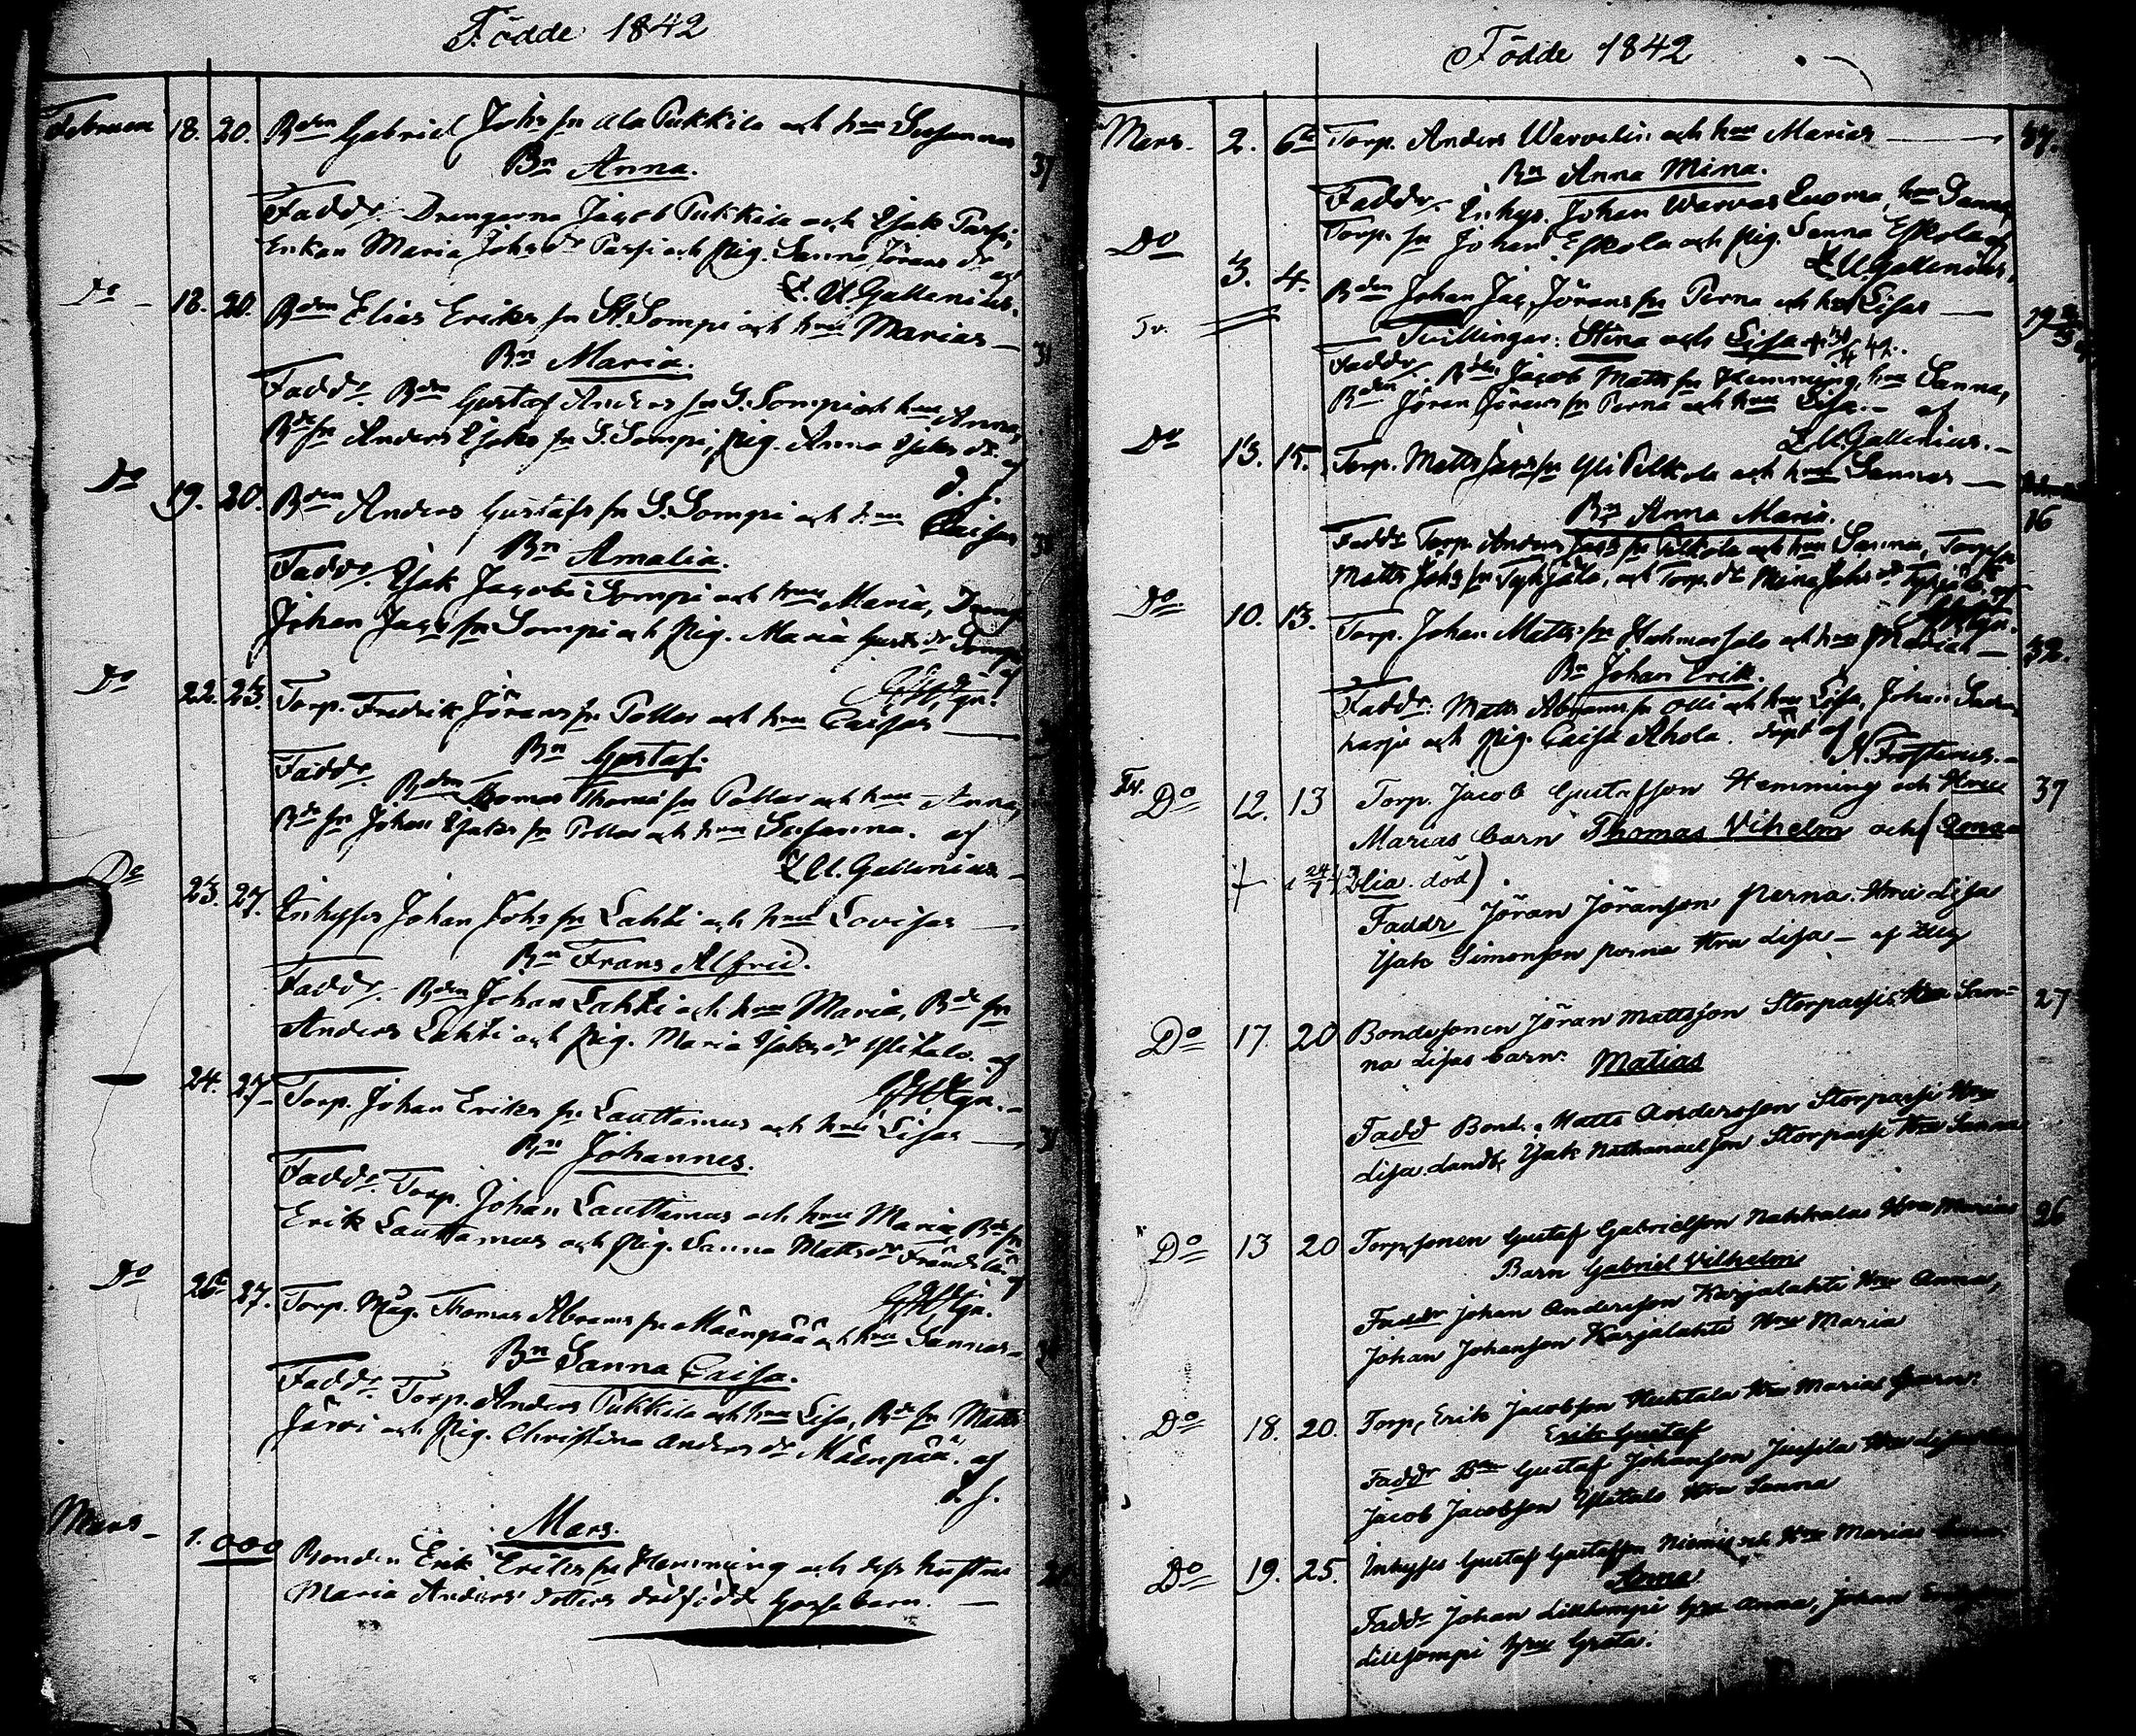 Födde 1842
Februari 18. 20. Bden Gabriel Johs sn Ala Pukkila och hru Susannas
Bn Anna. 37
Faddr. Drengarna Jacob Pukkila och Isak Parsi,
Enkan Maria Johs dr Parsi och Pig. Sanna Jörans dr af
L. U. Gallenius.
Do 18. 20. Bden Elias Eriks sn St. Sompi och hru Marias 31
Bn Maria.
Faddr. Bden Gustaf Anders sn L. Sompi och hru Anna,
Bde sn Anders Isaks sn L. Sompi, Pig. Anna Isaks dr. af
d. s.
Do 19. 20. Bden Anders Gustafs sn L. Sompi och hru Caisas
Bn Amalia.
Faddr. Isak Jacobs Sompi och hru Maria, Dreng
Johan Jacs sn Sompi och Pig. Maria Gust. dr Sompi
af
Do 22. 23. Torp. Fredrik Jörans sn Pollas och hru Caisas
Bn Gustaf.
Faddr. Bden Thomas Thomæ sn Pollas och hru Anna,
Bde sn Johan Isaks sn Pollas och hru Susanna. af
L. U. Gallenius
Do 23. 27. Inhyses Johan Johs sn Lahti och hru Lovisas
Bn Frans Alfred.
Faddr. Bden Johan Lahti och hru Maria, Bde sn
Anders Lahti och Pig. Maria Isaks dr Ylitalo. af
24. 27. Torp. Johan Eriks sn Lauttamus och hru Lisas 31
Bn Johannes.
Faddr. Torp. Johan Lauttamus och hru Maria, Bde sn
Erik Lauttamus och Pig. Sanna Matts dr Frändilä af
Do 26 27. Torp. Måg. Thomas Abrams sn Mäenpää och hru Sannas
Bn Sanna Caisa.
Faddr. Torp. Anders Pukkila och hru Lisa, Bde sn Matts
Järvi och Pig. Christina Anders dr Mäenpää. af
d. s.
Mars.
Mars 1. 000 Bonden Erik Eriks sn Hemming och dess hustru
Maria Anders dotters dödfödde Gossebarn.
Födde 1842
Mars. 2. 6 Torp. Anders Warvelin och hru Marias 37.
Bn Anna Mina.
Faddr. Inhys. Johan Warvas Luoma, hru Sanna,
Torp. sn Johan Eskola och Pig. Sanna Eskola af
L U Gallenius.
Do 3. 4. Bden Johan Jac. Jörans sn Perna och hru Lisas
Tv. Tvillingar: Stina och Lisa
Faddr. Bden Jacob Matts sn Hemming, hru Sanna,
Bden Jöran Jörans sn Perna och hru Lisa. af
L U Gallenius.
Do 13. 15. Torp. Matts Jacs sn Yli Pelkola och hru Sannas
Bn Anna Maria. 16
Faddr Torp. Anders Jacs sn Pelkola och hru Sanna, Torp. sn
Matts Johs sn Tyhjälä, och Torp. dr Mina Johs dr Tyhjälä. af
Do 10. 13. Torp. Johan Matts sn Hahmassalo och hru Marias 32.
Bn Johan Erik.
Faddr. Matts Abrams sn Olli och hru Lisa, Johan
harju och Pig. Caisa Ahola. döpt af
N. Frosterus.
Tv. Do 12. 13 Torp. Jacob Gustafsson Hemming och Hru 37
Marias barn Thomas Vihelm och (Ama-
lia. död)
Faddr Jöran Jöranson Perna Hru Lisa
Isak Simonson perna Hru Lisa
Do 17. 20 Bondesonen Jöran Mattsson Storpassi Hru San- 27
na Lisas barn: Matias
Fadd Bond. Matts Andersson Storpassi Hru
Lisa. Landb. Isak Nathanaelson Storpassi Hru Sanna
Do 13 20 Torpsonen Gustaf Gabrielson Nahkalas Hru Marias 26
Barn Gabriel Vilhelm
Faddr Johan Andersson Karjalahti Hru Anna,
Johan Johanson Karjalahti Hru Maria
Do 18. 20. Torp. Erik Jacobson Huhtala Hru Marias barn:
Erik Gustaf
Faddr Bden Gustaf Johanson Jussila Hru Lisa
Jacob Jacobson Ylitalo Hru Sanna
Do 19. 25. Inhyses Gustaf Gustafson Niemi och Hru Marias barn
Anna
Faddr Johan Lillsompi hru Anna, Johan
Lillsompi hru Greta.